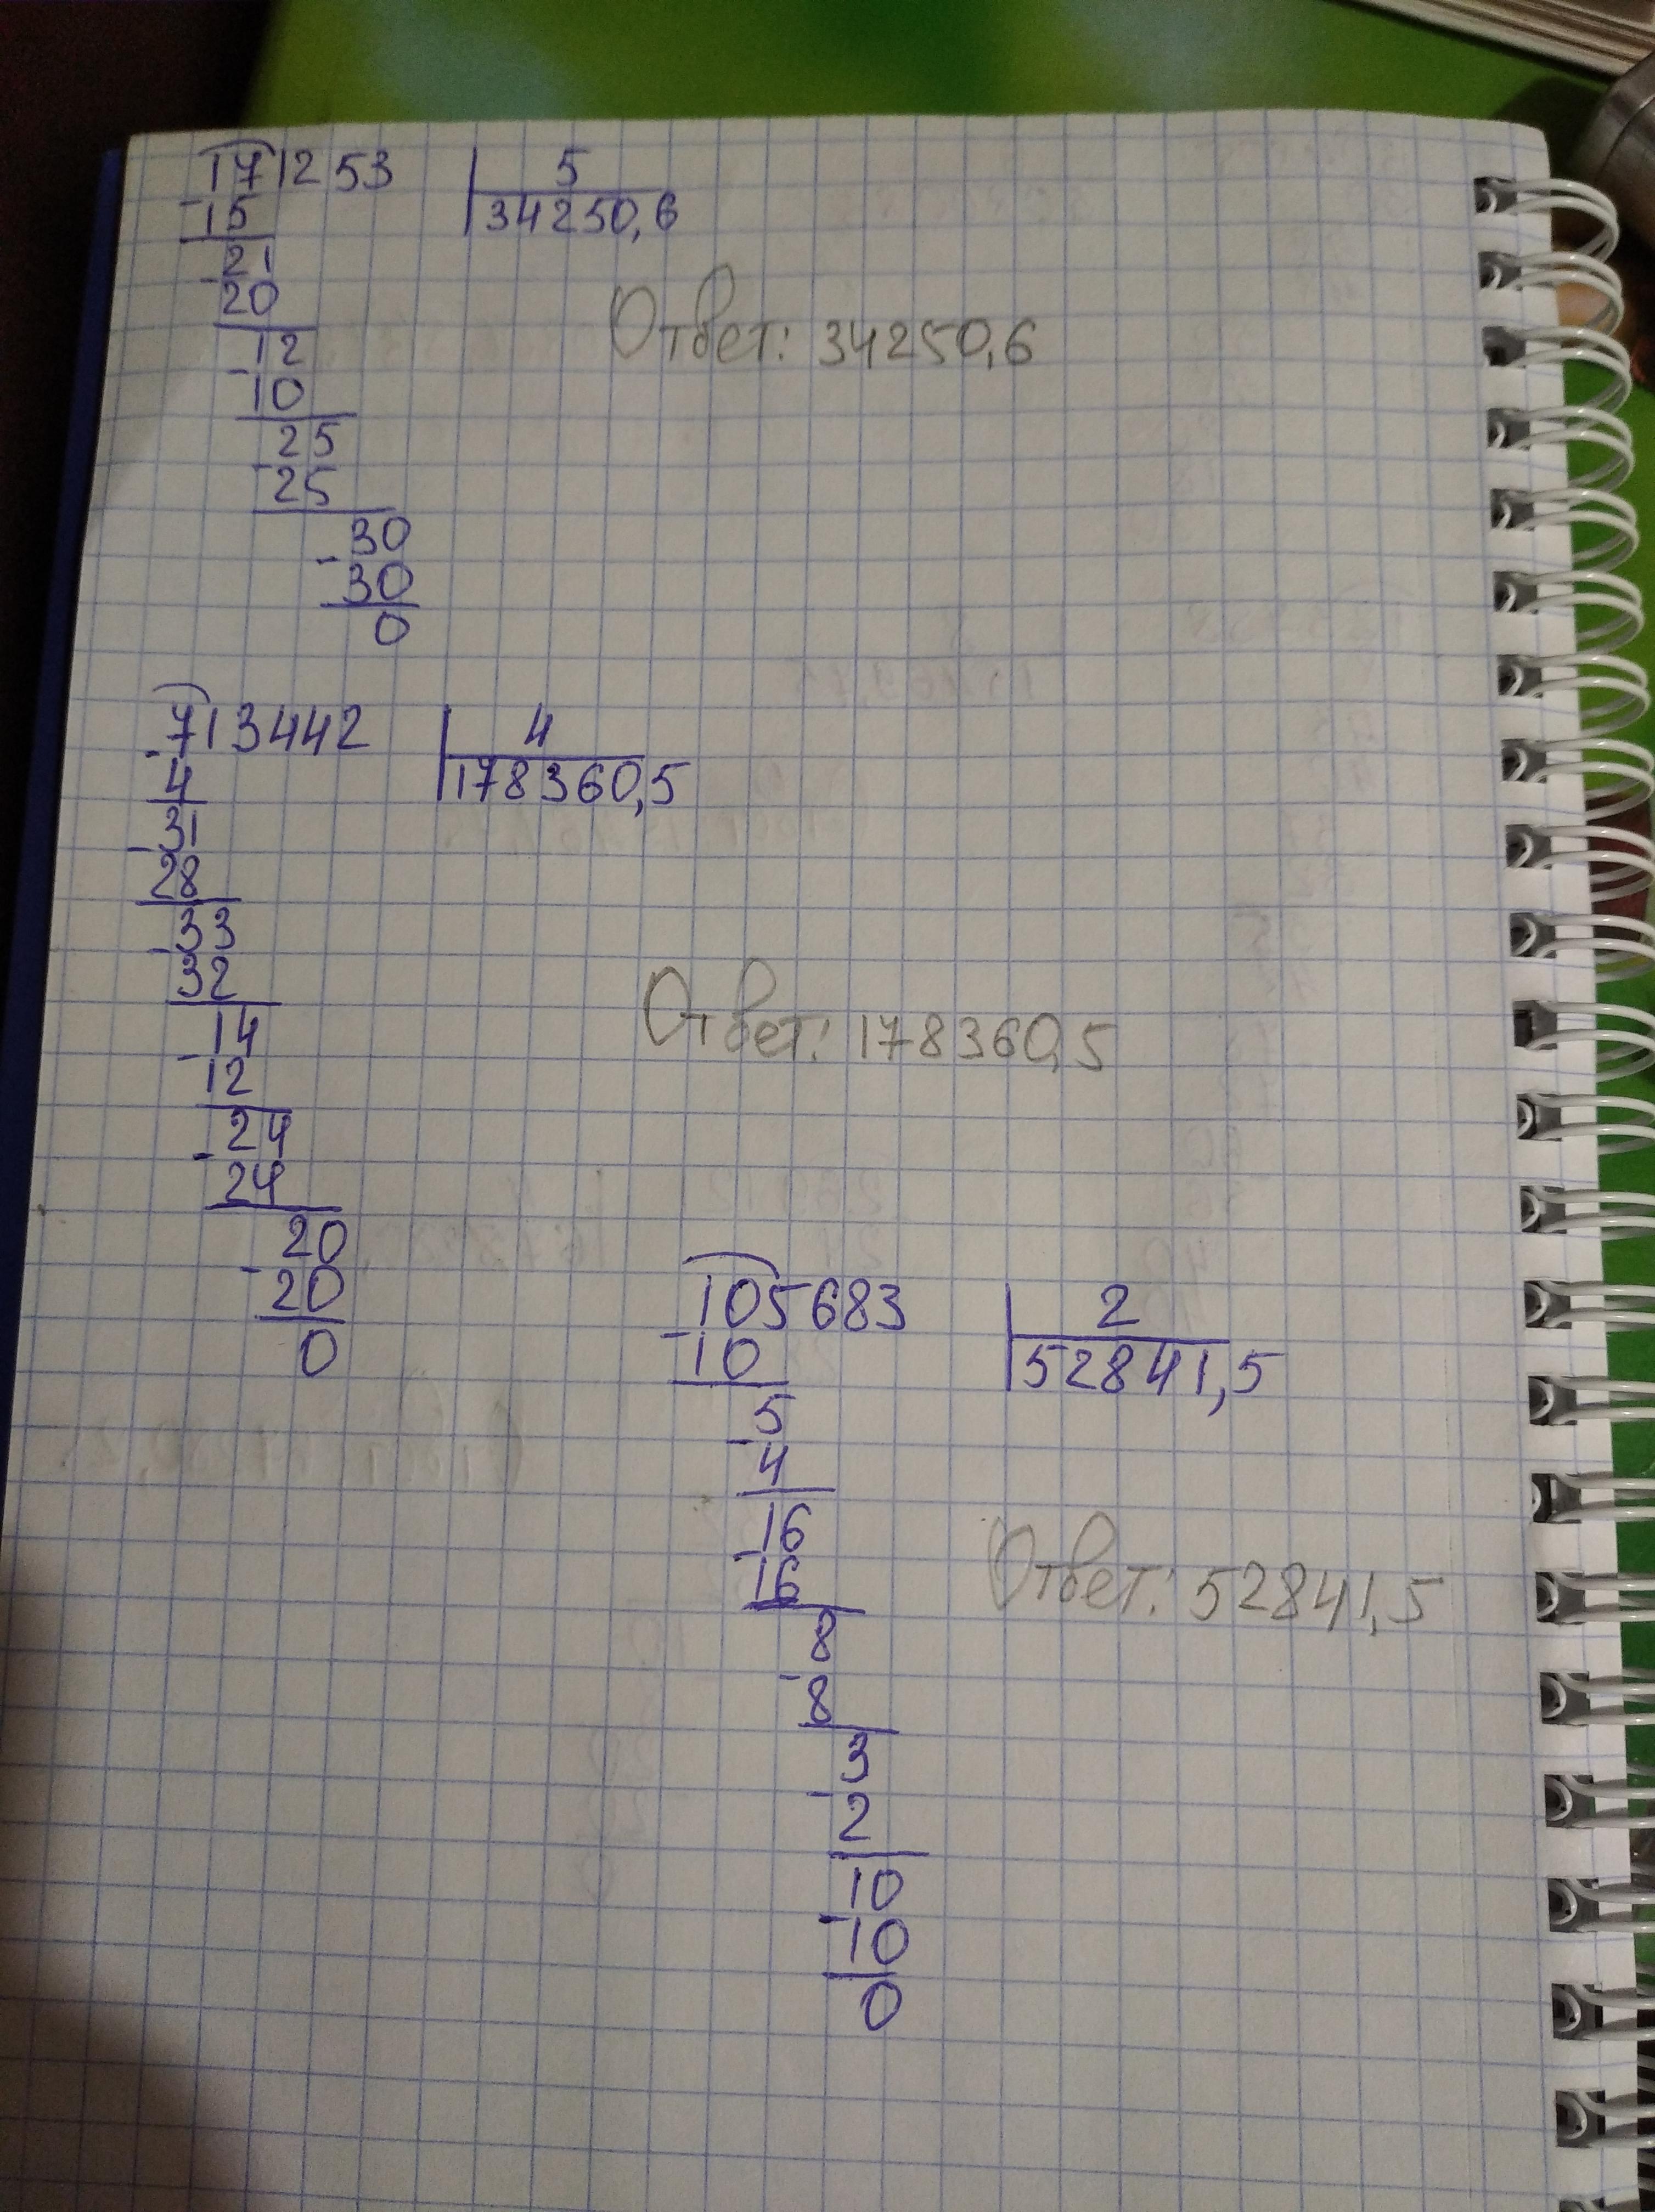 171253 5
15 34250,6
21
20
Ответ: 34250,6
12
10
25
25
30
30
0
713442 4
4 178360,5
31
28
33
32
Ответ: 178360,5
14
12
24
24
20
20
0
105683 2
10 52841,5
5
4
16
16
Ответ: 52841,5
8
8
3
2
10
10
0